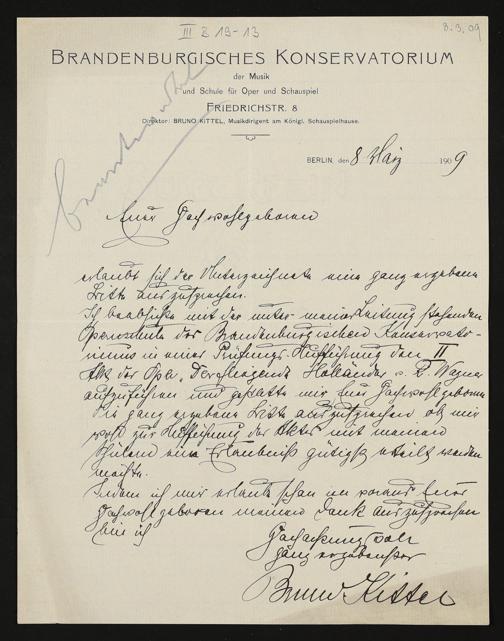 III Z 19-13
8.3.09
BRANDENBURGISCHES KONSERVATORIUM
der Musik
und Schule für Oper und Schauspiel
FRIEDRICHSTR. 8
Direktor: BRUNO KITTEL, Musikdirigent am Königl. Schauspielhause.
BERLIN, den 8 März 1909
beantwortet
Euer Hochwohlgeboren
erlaubt sich der Unterzeichnete eine ganz ergebene
Bitte auszusprechen.
Ich beabsichte mit der unter meiner Leitung stehenden
Opernschule des Brandenburgischen Konservato-
riums in einer Prüfungs-Aufführung den II
Akt der Oper „Der fliegende Holländer v. R. Wagner
aufzuführen und gestatte mir Euer Hochwohlgeboren
die ganz ergebene Bitte auszusprechen ob mir
wohl zur Aufführung des Aktes mit meinen
Schülern eine Erlaubniß gütigst erteilt werden
möchte.
Indem ich mir erlaube schon im voraus Euer
Hochwohlgeboren meinen Dank auszusprechen
bin ich
Hochachtungsvoll
ganz ergebenster
Bruno Kittel